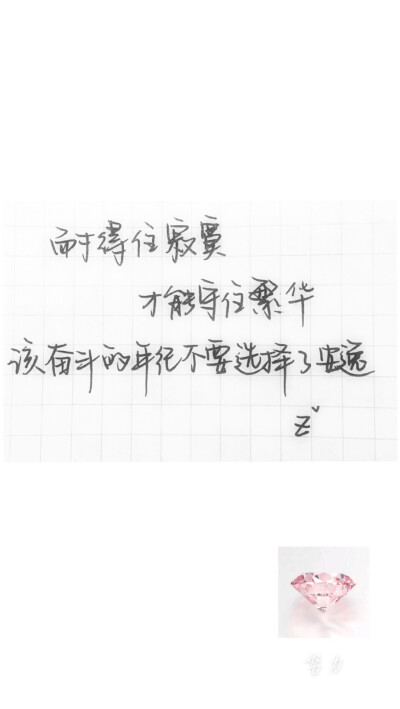 耐得住寂寞
才能守住繁华
该奋斗的年纪不要选择了安逸
Zv
努力